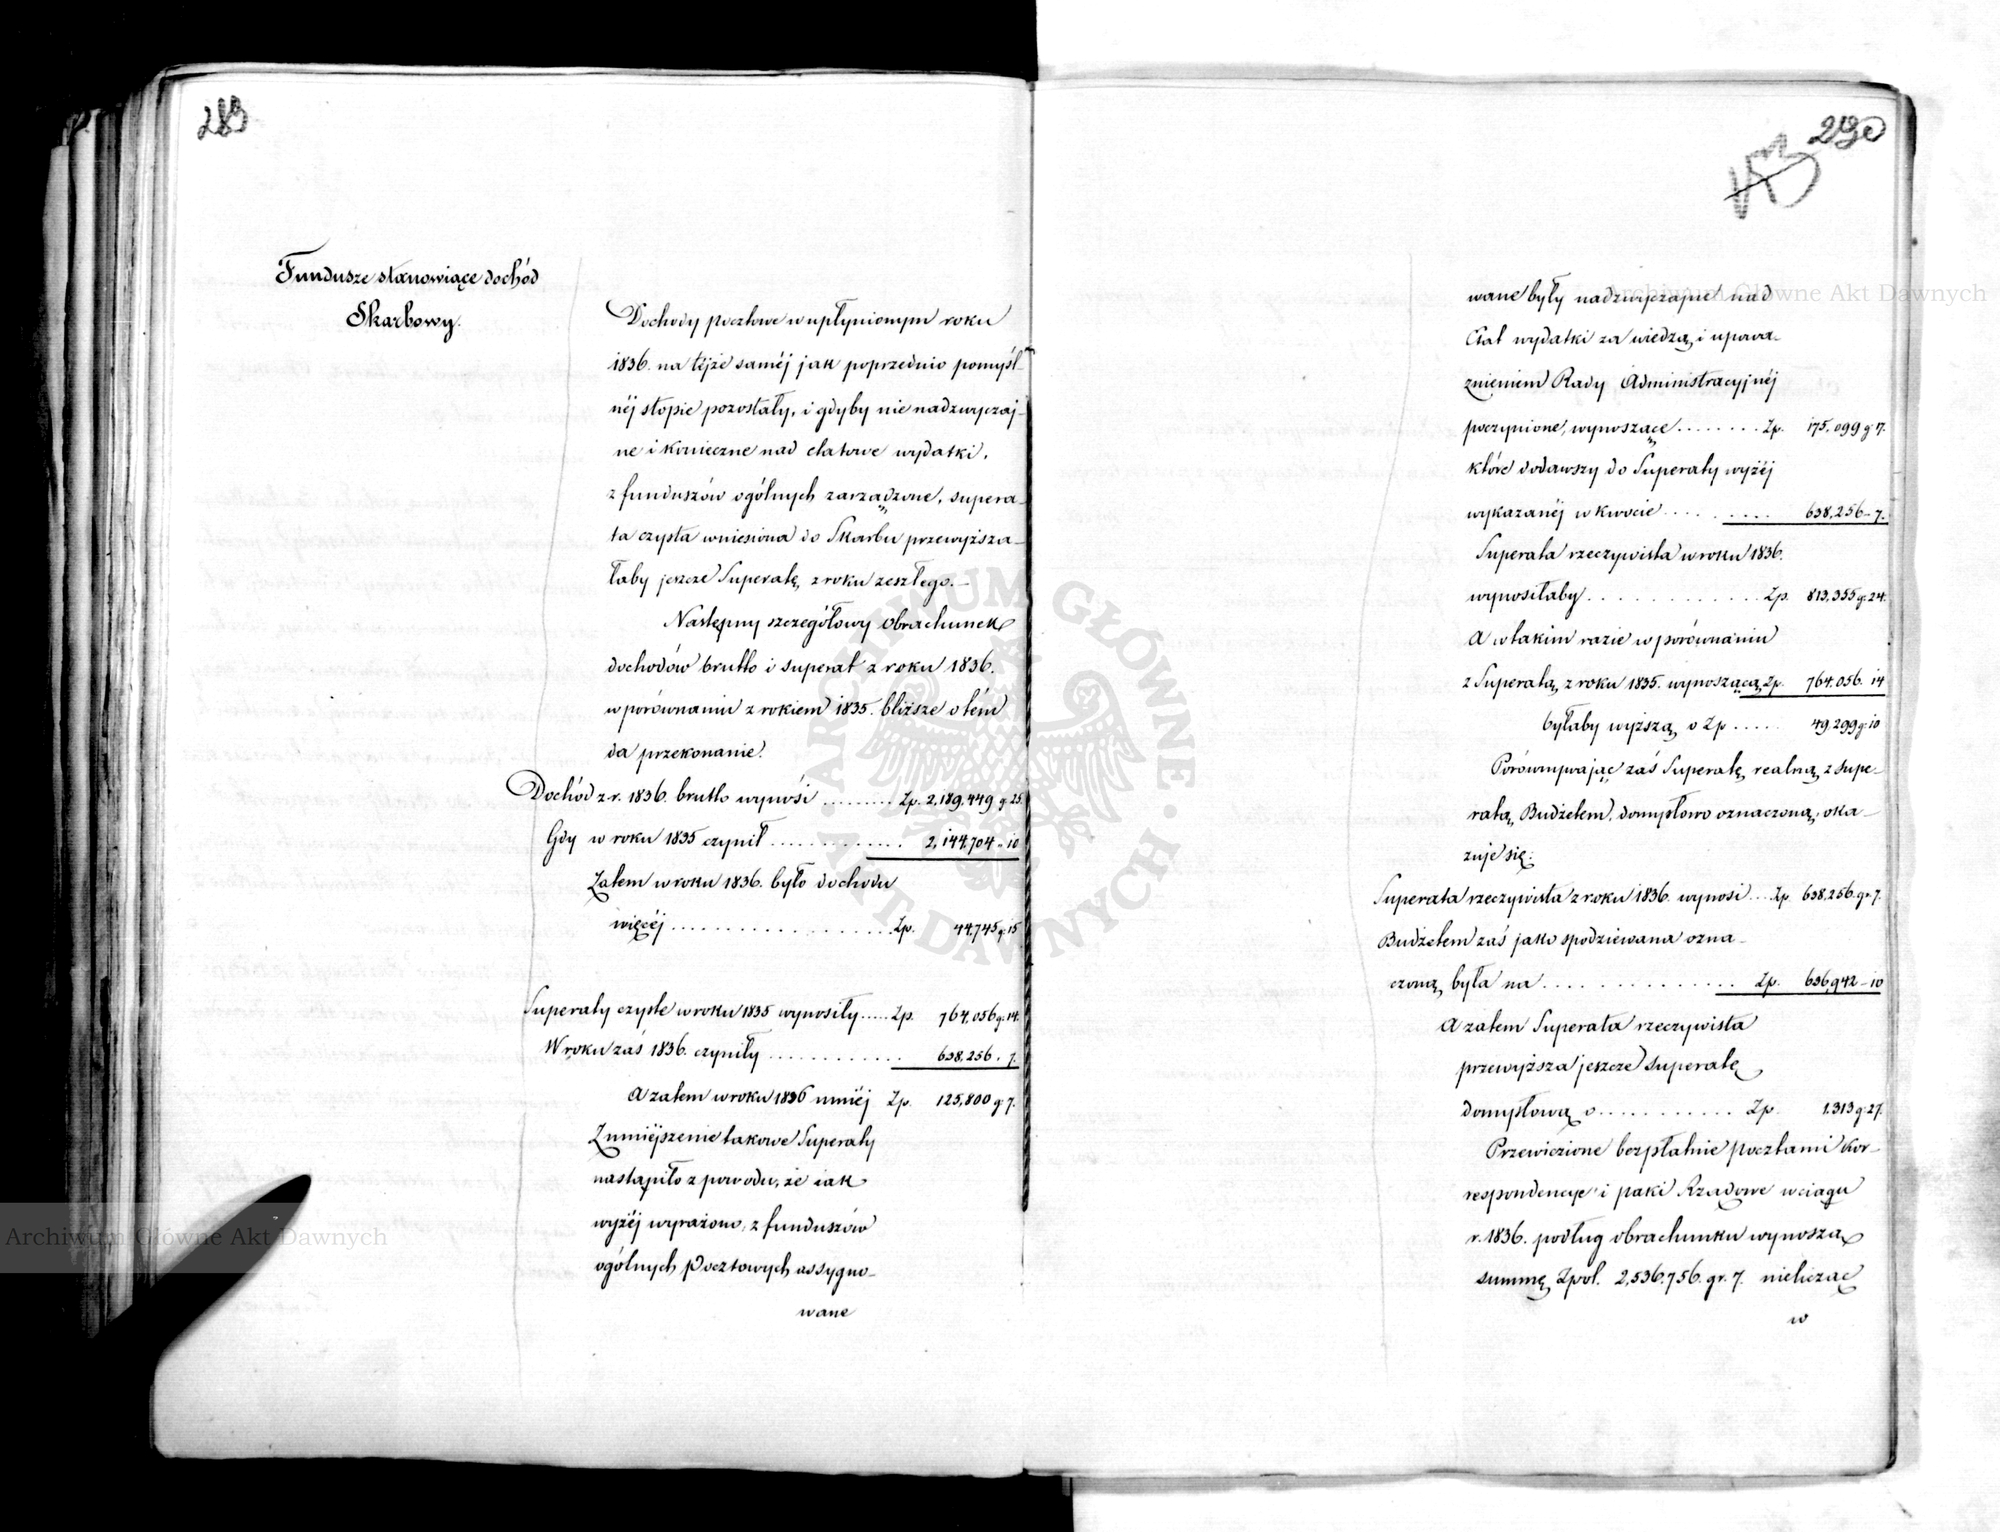 289
Fundusze stanowiące dochód
Skarbowy.
Dochody pocztowe w upłynionym roku
1836. na téjże saméj jak poprzednio pomyśl-
néj stopie pozostały, i gdyby nie nadzwyczaj-
ne i konieczne nad etatowe wydatki,
z funduszów ogólnych zarządzone, supera-
ta czysta wniesiona do Skarbu przewyższa-
łaby jeszcze Superatę z roku zeszłego.-
Następny szczegółowy obrachunek
dochodów brutto i superat z roku 1836.
w porównaniu z rokiem 1835. bliższe o tém
da przekonanie.
Dochód z r. 1836. brutto wynosi ......... Zp. 2,189,449 g. 25.
Gdy w roku 1835 czynił ............. 2,144,704 „ 10
Zatem w roku 1836. było dochodu
więcéj .................. Zp. 44,745 g: 15
Superaty czyste w roku 1835 wynosiły ..... Zp. 764,056 g: 14.
W roku zaś 1836. czyniły ............ 638,256 . 7.
A zatem w roku 1836 mniéj Zp. 125,800 g: 7.
Zmniéjszenie takowe Superaty
nastąpiło z powodu, że iak
wyżéj wyrażono, z funduszów
ogólnych Pocztowych assygno-
wane
290
wane były nadzwyczajne nad
Etat wydatki za wiedzą i upowa-
żnieniem Rady Administracyjnéj
poczynione, wynoszące ........ Zp. 175,099 g: 7.
które dodawszy do Superaty wyżéj
wykazanéj w kwocie ......... 638,256 - 7.
Superata rzeczywista w roku 1836.
wynosiłaby .............. Zp. 813,355 g: 24.
A w takim razie w porównaniu
z Superatą z roku 1835. wynoszącą Zp. 764,056. 14
byłaby wyższą o Zp ..... 49,299 g: 10
Porównywając zaś Superatę realną z supe-
ratą Budżetem, domysłowo oznaczoną, oka-
zuje się:
Superata rzeczywista z roku 1836. wynosi ... Zp. 638,256. gr. 7.
Budżetem zaś jako spodziewana ozna-
czoną była na .............. Zp. 636,942 - 10
A zatem Superata rzeczywista
przewyższa jeszcze superatę
domysłową o ........... Zp. 1,313 g: 27.
Przewiezione bezpłatnie pocztami kor-
respondencye i paki Rządowe w ciągu
r. 1836. podług obrachunku wynoszą
summę Zpol. 2,536,756. gr. 7. nielicząc
w
Archiwum Główne Akt Dawnych
Archiwum Główne Akt Dawnych
ARCHIWUM GŁÓWNE · AKT DAWNYCH ·